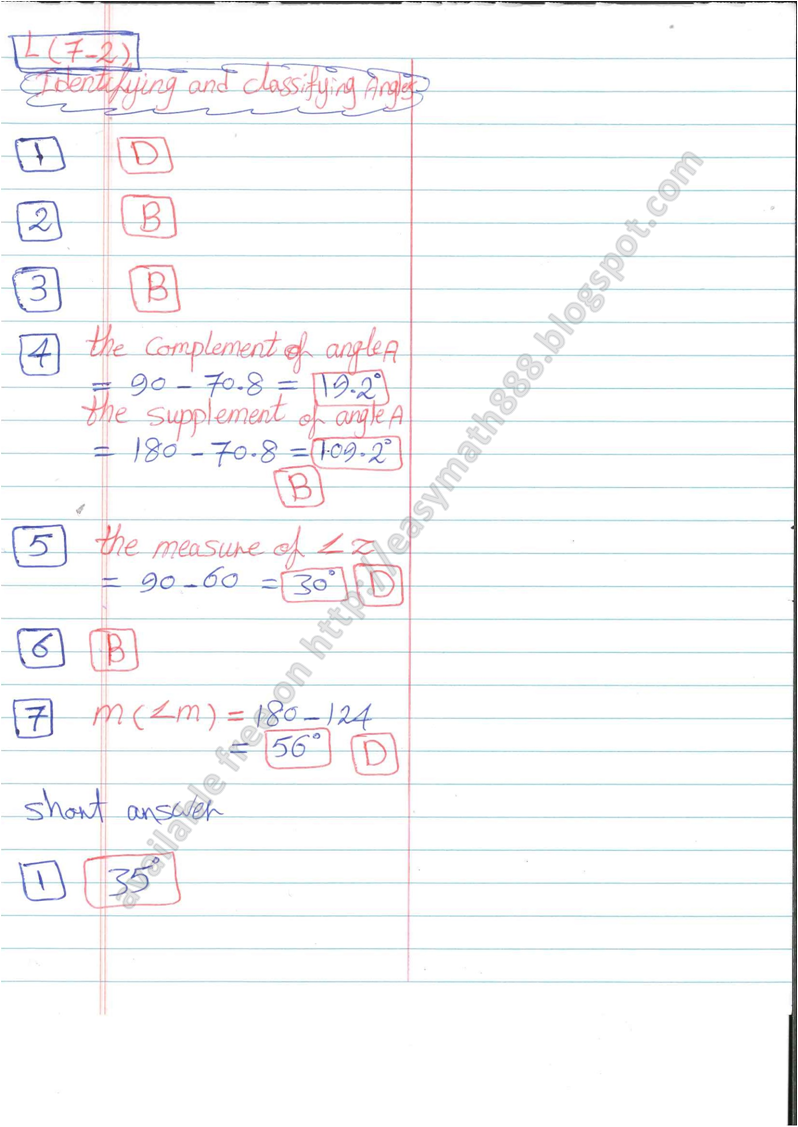 L(7-2)
Identifying and classifying Angles
1 D
2 B
3 B
4 the complement of angle A
= 90 - 70.8 = 19.2°
the supplement of angle A
= 180 - 70.8 = 109.2°
B
5 the measure of ∠z
= 90 - 60 = 30° D
6 B
7 m(∠m) = 180 - 124
= 56° D
short answer
1 35°
available free on http://easymath888.blogspot.com